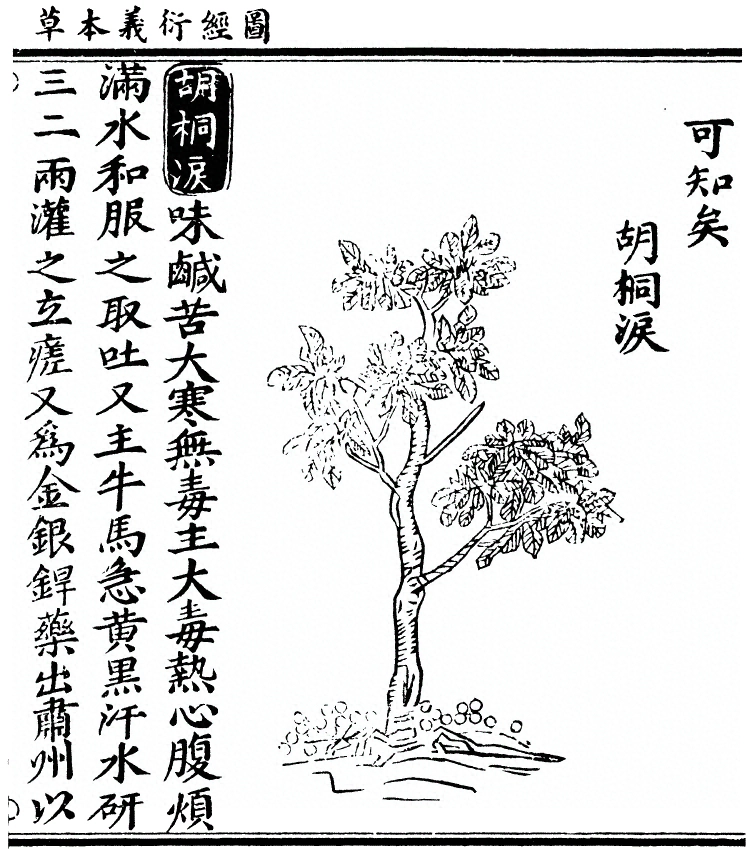 圖經衍義本草
可知矣
胡桐淚
胡桐淚味鹹苦大寒無毒主大毒熱心腹煩
滿水和服之取吐又主牛馬急黄黒汗水研
三二兩灌之立瘥又爲金銀銲藥出肅州以